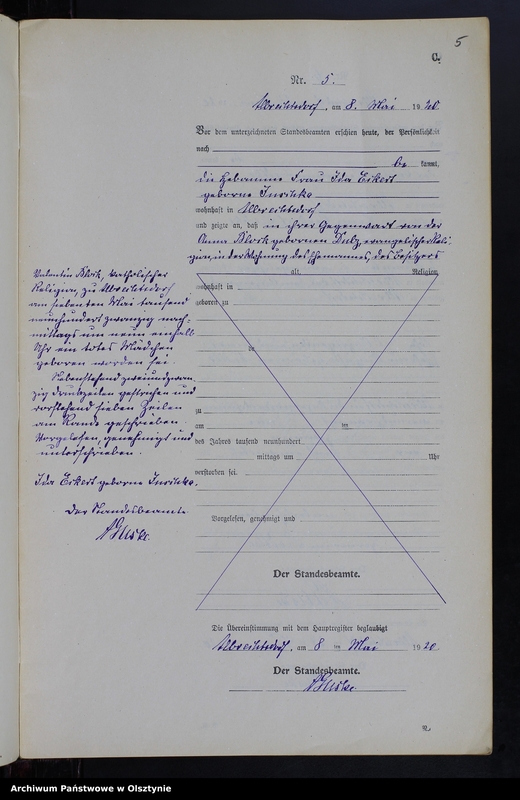 5
C.
Nr. 5.
Ulbrichtsdorf, am 8. Mai 1920
Vor dem unterzeichneten Standesbeamten erschien heute, der Persönlichkeit
nach
be kannt,
die Hebamme Frau Ida Eikert
geborne
wohnhaft in Albrechtsdorf
und zeigte an, daß in ihrer Gegenwart von der
Anna Block gebornen Pulz, evangelischer Reli-
gion, in der Wohnung des Ehemannes, des Besitzers
alt, Religion,
Valentin Block, katholischer
Religion, zu Albrechtsdorf
am siebenten Mai tausend
neunhundert zwanzig nach-
mittags um neun einhalb
Uhr ein totes Mädchen
geboren worden sei.
Nebenstehend zweiundzwan-
zig Druckzeilen gestrichen und
vorstehend sieben Zeilen
am Rande geschrieben.
Vorgelesen, genehmigt und
unterschrieben.
Ida Eikert geborne
Der Standesbeamte
wohnhaft in
geboren zu
de
zu
am im
des Jahres tausend neunhundert
mittags um Uhr
verstorben sei.
Vorgelesen, genehmigt und
Der Standesbeamte.
Die Übereinstimmung mit dem Hauptregister beglaubigt
Albrechtsdorf, am 8 im Mai 1920.
Der Standesbeamte.
Archiwum Państwowe w Olsztynie